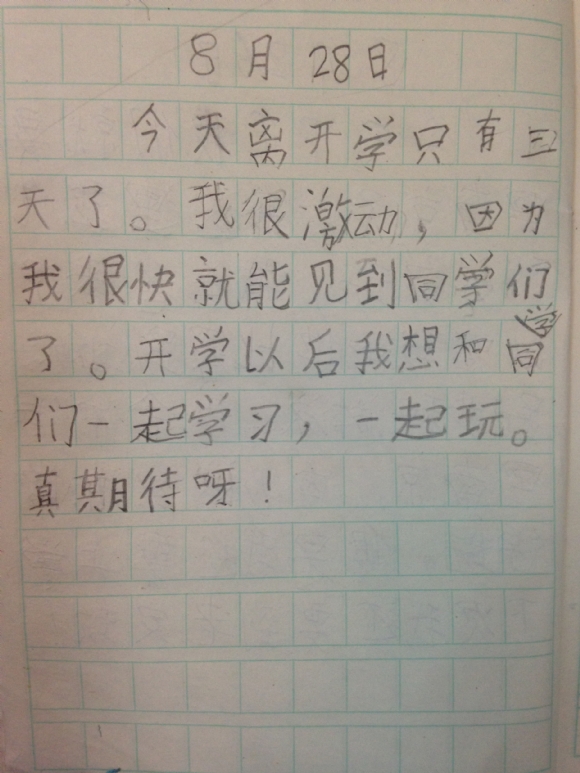 8月28日
今天离开学只有三
天了。我很激动，因为
我很快就能见到同学们
了。开学以后我想和同学
们一起学习，一起玩。
真期待呀！